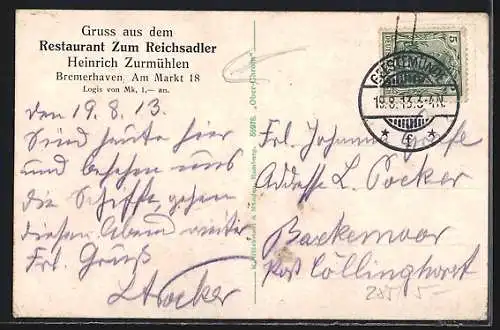 Gruss aus dem
Restaurant Zum Reichsadler
Heinrich Zurmühlen
Bremerhaven Am Markt 18
Logis von Mk. 1,— an.
den 19.8.13.
Sind heute hier
und besehen uns
die Schiffe, gehen
diesen Abend weiter
Frl. Gruß
L
5
GEESTEMÜNDE
19.8.13. 3-4 N.
* f *
Frl. Johanne
Adresse L.
Backemoor
Post Collinghorst
"Ober-Chrom"